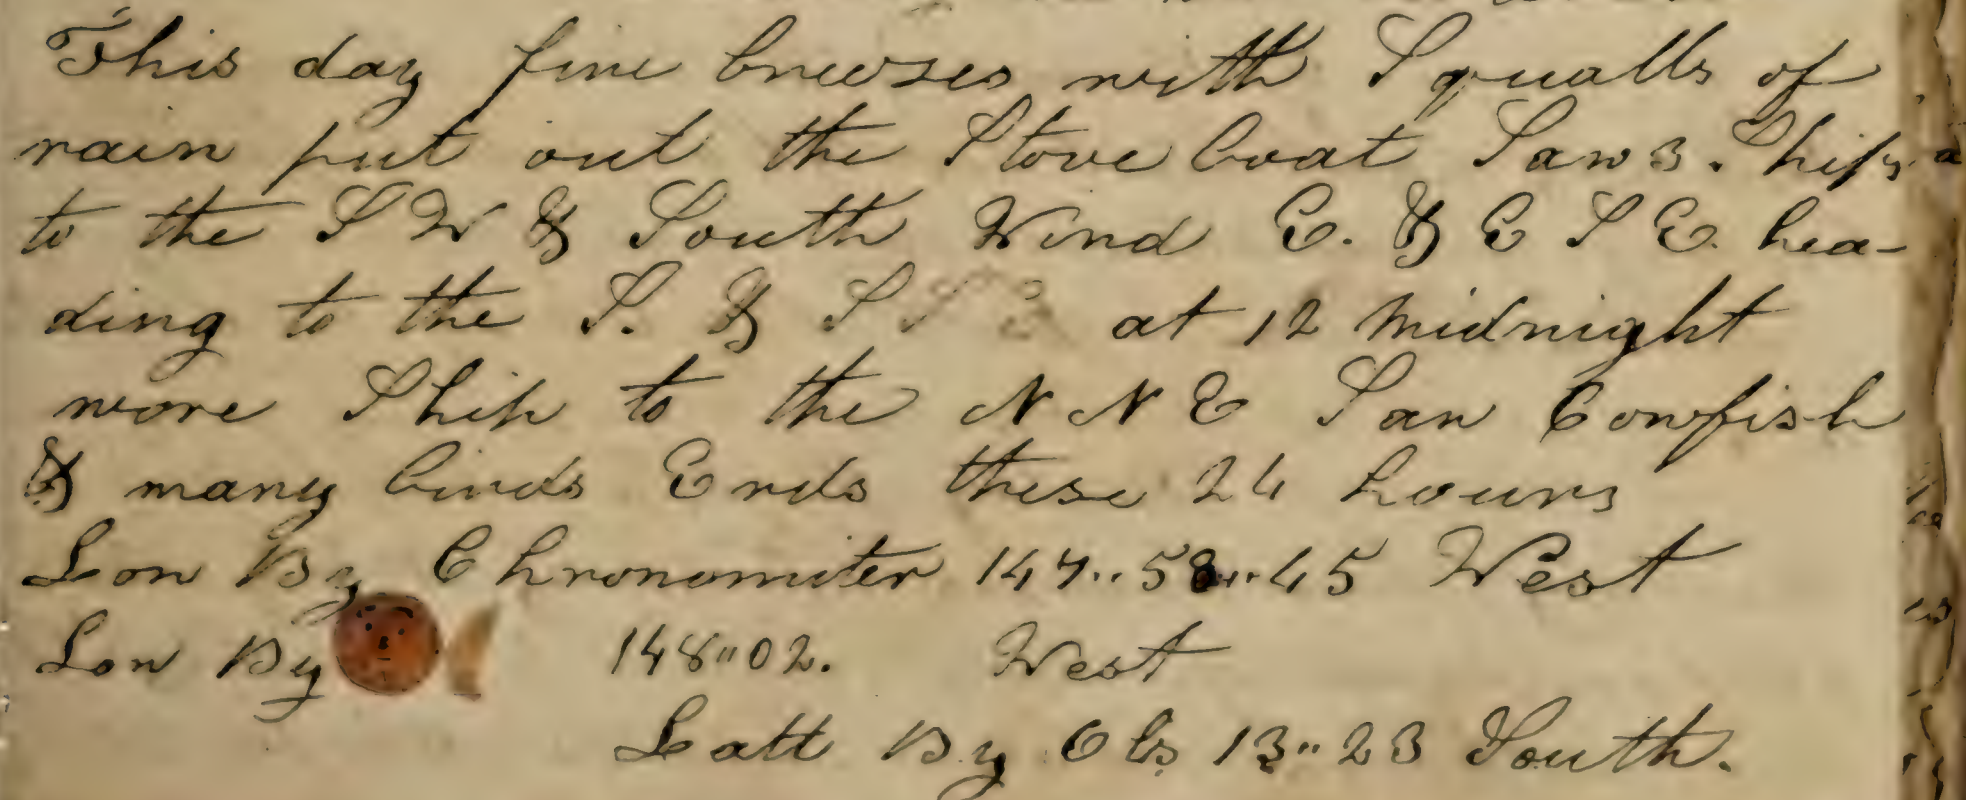 This day fine breezes with Squalls of
rain put out the Stove boat Saw 3. Ships
to the S W & South Wind E. & E S E. hea-
ding to the S. & S S E at 12 Midnight
wore Ship to the N N E Saw Cowfish
& many birds Ends these 24 hours
Lon By Chronomiter 147..58..45 West
Lon By 148"02. West
Latt By Obs 13"23 South.